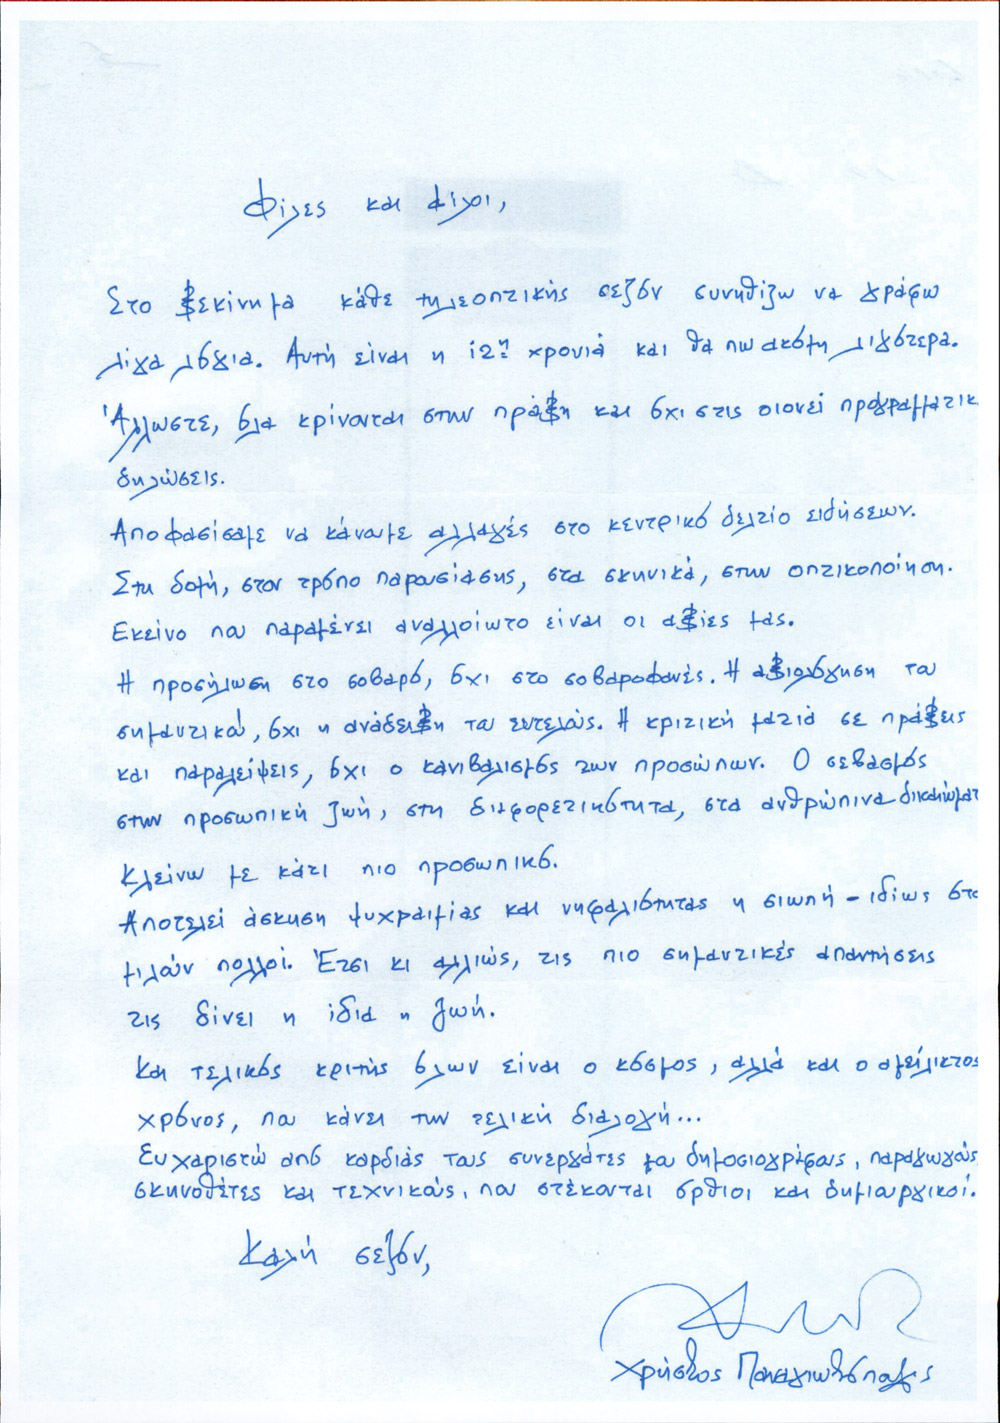 Φίλες και φίλοι,
Στο ξεκίνημα κάθε τηλεοπτικής σεζόν συνηθίζω να γράφω
λίγα λόγια. Αυτή είναι η 12η χρονιά και θα πω ακόμη λιγότερα.
Άλλωστε, όλα κρίνονται στην πράξη και όχι στις οιονεί προγραμματικ
δηλώσεις.
Αποφασίσαμε να κάνουμε αλλαγές στο κεντρικό δελτίο ειδήσεων.
Στη δομή, στον τρόπο παρουσίασης, στα σκηνικά, στην οπτικοποίηση.
Εκείνο που παραμένει αναλλοίωτο είναι οι αξίες μας.
Η προσήλωση στο σοβαρό, όχι στο σοβαροφανές. Η αξιολόγηση του
σημαντικού, όχι η ανάδειξη του ευτελούς. Η κριτική ματιά σε πράξεις
και παραλείψεις, όχι ο κανιβαλισμός των προσώπων. Ο σεβασμός
στην προσωπική ζωή, στη διαφορετικότητα, στα ανθρώπινα δικαιώματ
Κλείνω με κάτι πιο προσωπικό.
Αποτελεί άσκηση ψυχραιμίας και νηφαλιότητας η σιωπή – ιδίως ότα
μιλούν πολλοί. Έτσι κι αλλιώς, τις πιο σημαντικές απαντήσεις
τις δίνει η ίδια η ζωή.
Και τελικός κριτής όλων είναι ο κόσμος, αλλά και ο αμείλικτος
χρόνος, που κάνει την τελική διαλογή...
Ευχαριστώ από καρδιάς τους συνεργάτες μου δημοσιογράφους, παραγωγούς,
σκηνοθέτες και τεχνικούς, που στέκονται όρθιοι και δημιουργικοί.
Καλή σεζόν,
Χρήστος Παναγιωτόπουλος